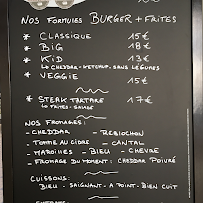 Nos Formules BURGER + FRITES
* CLASSIQUE 15€
* BIG 18€
* KID 13€
LO CHEDDAR - KETCHUP - SANS LÉGUMES
* VEGGIE 15€
* STEAK TARTARE 17€
LO FRITES - SALADE
NOS FROMAGES:
- CHEDDAR - REBLOCHON
- TOMME AU CIDRE - CANTAL
- MAROILLES - BLEU - CHEVRE
- FROMAGE DU MOMENT: CHEDDAR POIVRÉ
CUISSONS:
BLEU - SAIGNANT - A POINT - BIEN CUIT